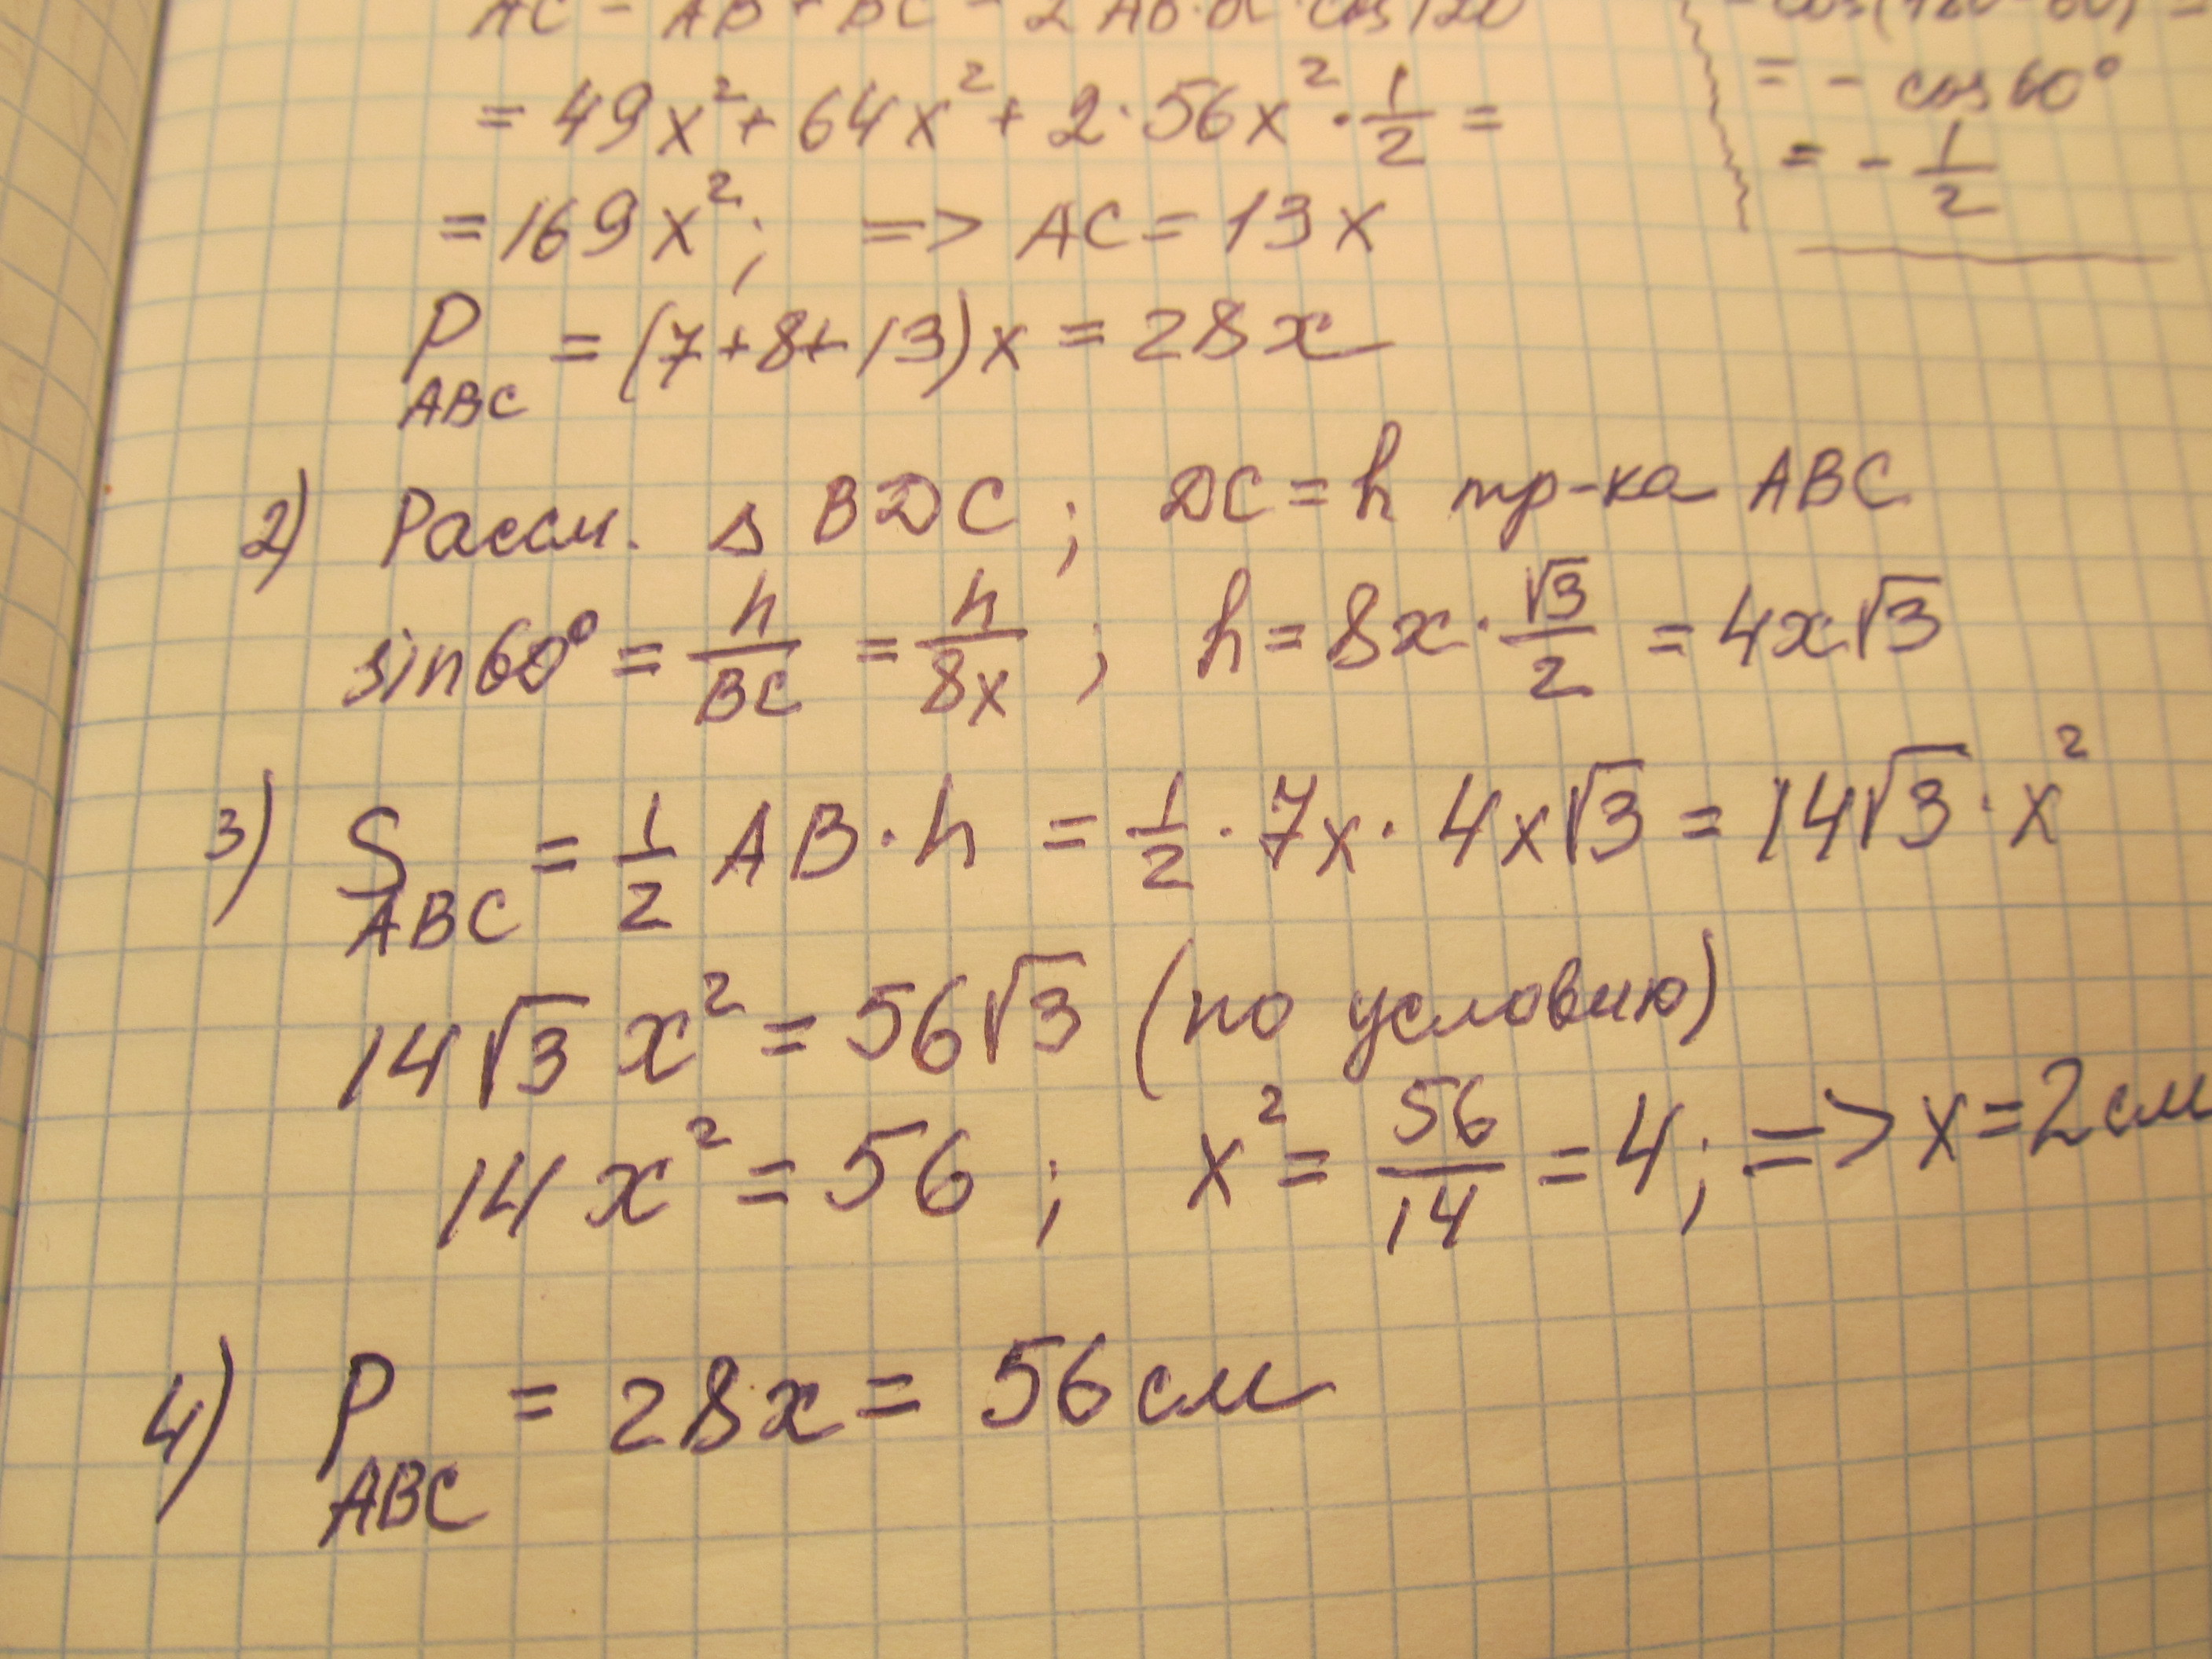 AC = AB + BC - 2AB·BC·cos120
= 49x² + 64x² + 2·56x²·1/2 =
= 169x²; => AC = 13x
P ABC = (7+8+13)x = 28x
= - cos60°
= - 1/2
2) Рассм. Δ BDC; DC = h тр-ка ABC
sin60° = h/BC = h/8x; h = 8x·√3/2 = 4x√3
3) S ABC = 1/2 AB·h = 1/2·7x·4x√3 = 14√3·x²
14√3 x² = 56√3 (по условию)
14x² = 56; x² = 56/14 = 4; => x = 2см
4) P ABC = 28x = 56см